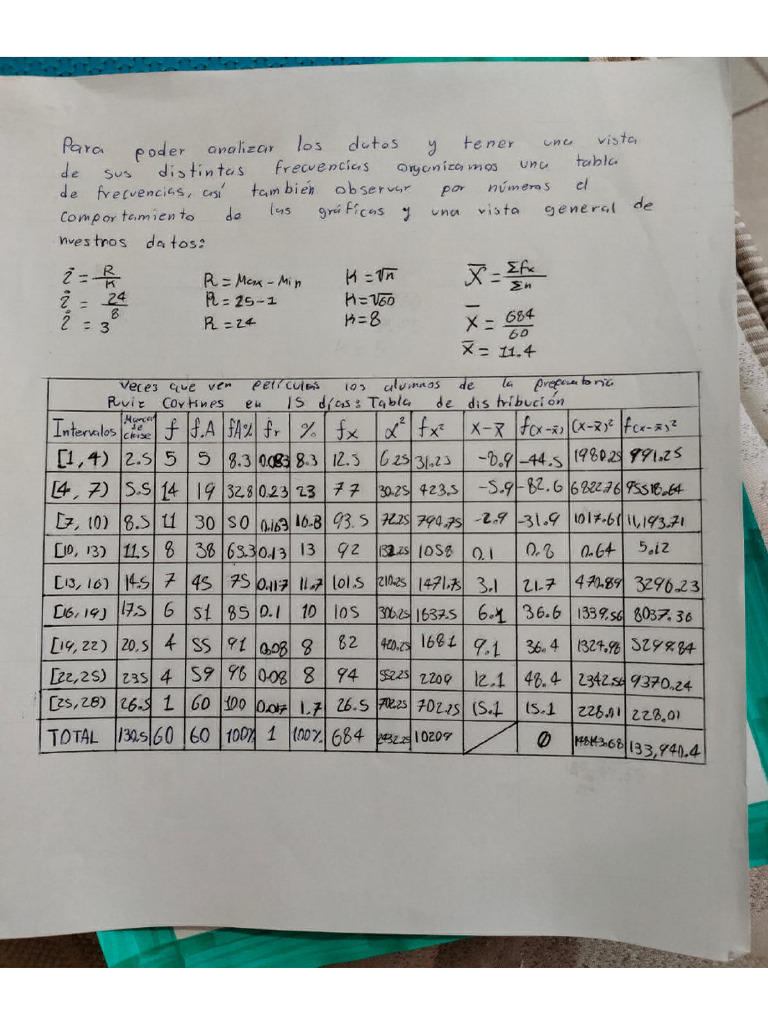 Para poder analizar los datos y tener una vista
de sus distintas frecuencias organizamos una tabla
de frecuencias, así también observar por números el
comportamiento de las gráficas y una vista general de
nuestros datos:
i = R/K R = Max - Min K = √n X̄ = Σfx/Σn
i = 24/8 R = 25-1 K = √60 X̄ = 684/60
i = 3 R = 24 K = 8 X̄ = 11.4
Veces que ven películas los alumnos de la preparatoria
Ruiz Cortines en 15 días: Tabla de distribución
Intervalos Marcas de clase f f.A fA% fr % fx x² fx² x-x̄ f(x-x̄) (x-x̄)² f(x-x̄)²
[1, 4) 2.5 5 5 8.3 0.083 8.3 12.5 6.25 31.25 -8.9 -44.5 1980.25 991.25
[4, 7) 5.5 14 19 32.8 0.23 23 77 30.25 423.5 -5.9 -82.6 6822.76 95518.64
[7, 10) 8.5 11 30 50 0.163 18.8 93.5 72.25 794.75 -2.9 -31.9 1017.61 11,193.71
[10, 13) 11.5 8 38 63.3 0.13 13 92 132.25 1058 0.1 0.8 0.64 5.12
[13, 16) 14.5 7 45 75 0.117 11.7 101.5 210.25 1471.75 3.1 21.7 470.89 3296.23
[16, 19) 17.5 6 51 85 0.1 10 105 306.25 1837.5 6.1 36.6 1339.56 8037.36
[19, 22) 20.5 4 55 91 0.08 8 82 420.25 1681 9.1 36.4 1324.96 5299.84
[22, 25) 23.5 4 59 98 0.08 8 94 552.25 2209 12.1 48.4 2342.56 9370.24
[25, 28) 26.5 1 60 100 0.017 1.7 26.5 702.25 702.25 15.1 15.1 228.01 228.01
TOTAL 130.5 60 60 100% 1 100% 684 2432.25 10209 0 133,940.4